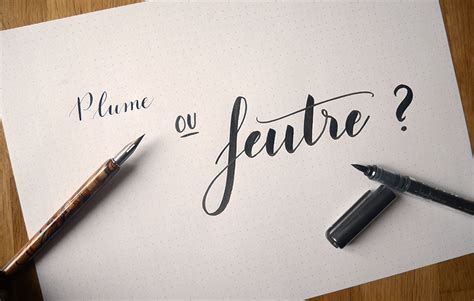 Plume ou feutre ?